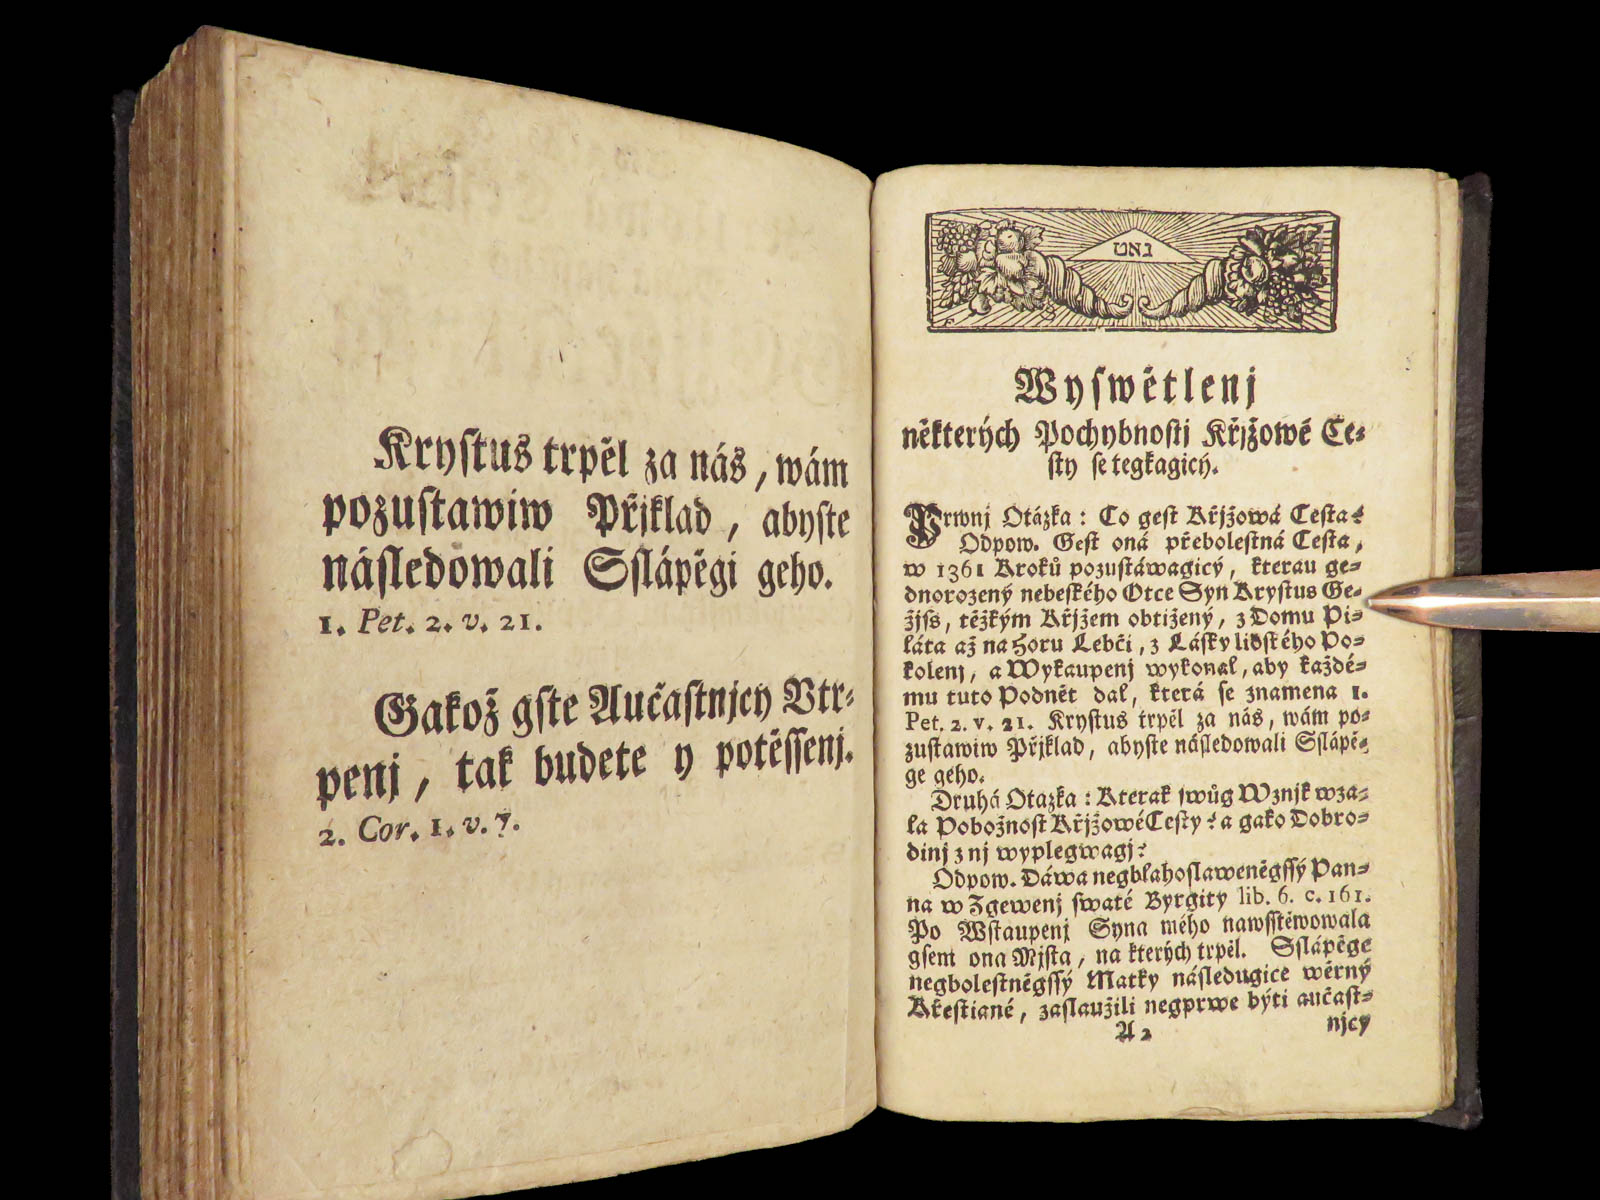 Krystus trpěl za nás, wám
pozustawiw Přjklad, abyste
následowali Sslápěgi geho.
1. Pet. 2. v. 21.
Gakož gste Aučastnjcy Vtr-
penj, tak budete y potěssenj.
2. Cor. 1. v. 7.
Wyswětlenj
některých Pochybnostj Křjžowé Ce-
sty se tegkagicý.
Prwnj Otázka: Co gest Křjžowá Cesta?
Odpow. Gest oná přebolestná Cesta,
w 1361 Kroků pozustáwagicý, kterau ge-
dnorozený nebeského Otce Syn Krystus Ge-
žjss, těžkým Křjžem obtižený, z Domu Pi-
láta až na Horu Lebči, z Lásky lidského Po-
kolenj, a Wykaupenj wykonal, aby každé-
mu tuto Podnět dal, která se znamena 1.
Pet. 2. v. 21. Krystus trpěl za nás, wám po-
zustawiw Přjklad, abyste následowali Sslápě-
ge geho.
Druhá Otazka: Kterak swůg Wznjk wza-
la Pobožnost Křjžowé Cesty? a gako Dobro-
dinj z nj wyplegwagj?
Odpow. Dáwa negblahoslaweněgssý Pan-
na w Zgewenj swaté Byrgity lib. 6. c. 161.
Po Wstaupenj Syna mého nawsstěwowala
gsem ona Mjsta, na kterých trpěl. Sslápěge
negbolestněgssý Matky následugice wěrný
Křestiané, zaslaužili negprwe býti aučast-
A 2 njcy